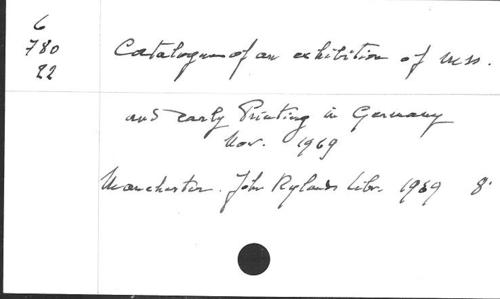 6
780
22
Catalogue of an exhibition of mss.
and early Printing in Germany
Nov. 1969
Manchester. John Rylands Libr. 1969 8°